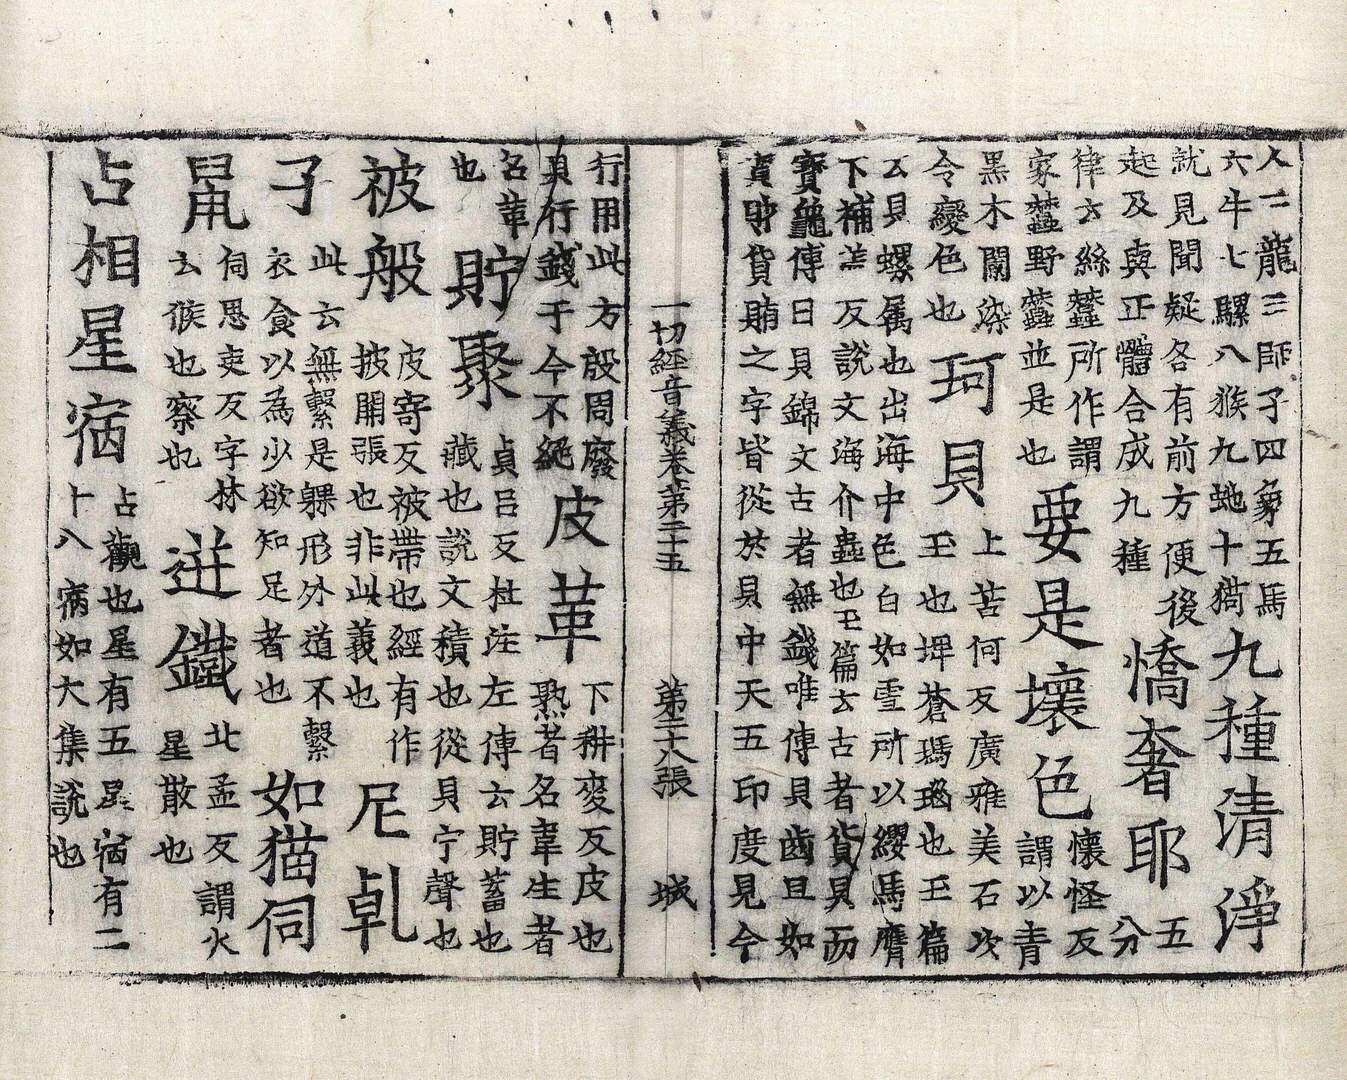 人二龍三師子四象五馬六牛七騾八猴九虵十猗九種清淨
就見聞疑各有前方便後起及與正體合成九種憍奢耶五分
律云絲蠶所作謂家蠶野蠶並是也要是壞色懷怪反謂以青
黑木蘭染令變色也珂貝上苦何反廣雅美石次玉也埤蒼瑪瑙也玉篇
云貝螺属也出海中色白如雪所以纓馬膺下補盖反說文海介蟲也玉篇云古者貨貝而
寶龜傳曰貝錦文古者無錢唯傳貝齒且如資財貨賄之字皆從於貝中天五印度見今
一切經音義卷第二十五 第二十八張 城
行用此方殷周廢貝行錢于今不絕皮革下耕麥反皮也熟者名韋生者
名革也貯聚貞呂反杜注左傳云貯蓄也藏也說文積也從貝宁聲也
被般皮寄反被帶也經有作披開張也非此義也尼乹
子此云無繫是躶形外道不繫衣食以為少欲知足者也如猫伺
鼠伺思吏反字林云候也察也迸鐵北孟反謂火星散也
占相星宿占觀也星有五星宿有二十八宿如大集說也